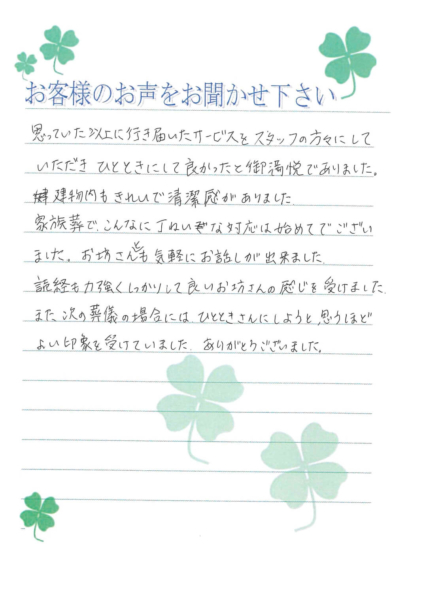 お客様のお声をお聞かせ下さい
思っていた以上に行き届いたサービスをスタッフの方々にして
いただき ひとときにして良かったと御満悦でありました。
建物内もきれいで清潔感がありました
家族葬で、こんなに丁ねいな対応は始めてでござい
ました。お坊さんとも気軽にお話しが出来ました
読経も力強くしっかりして良いお坊さんの感じを受けました
また次の葬儀の場合には、ひとときさんにしようと、思うほど
よい印象を受けていました ありがとうございました。